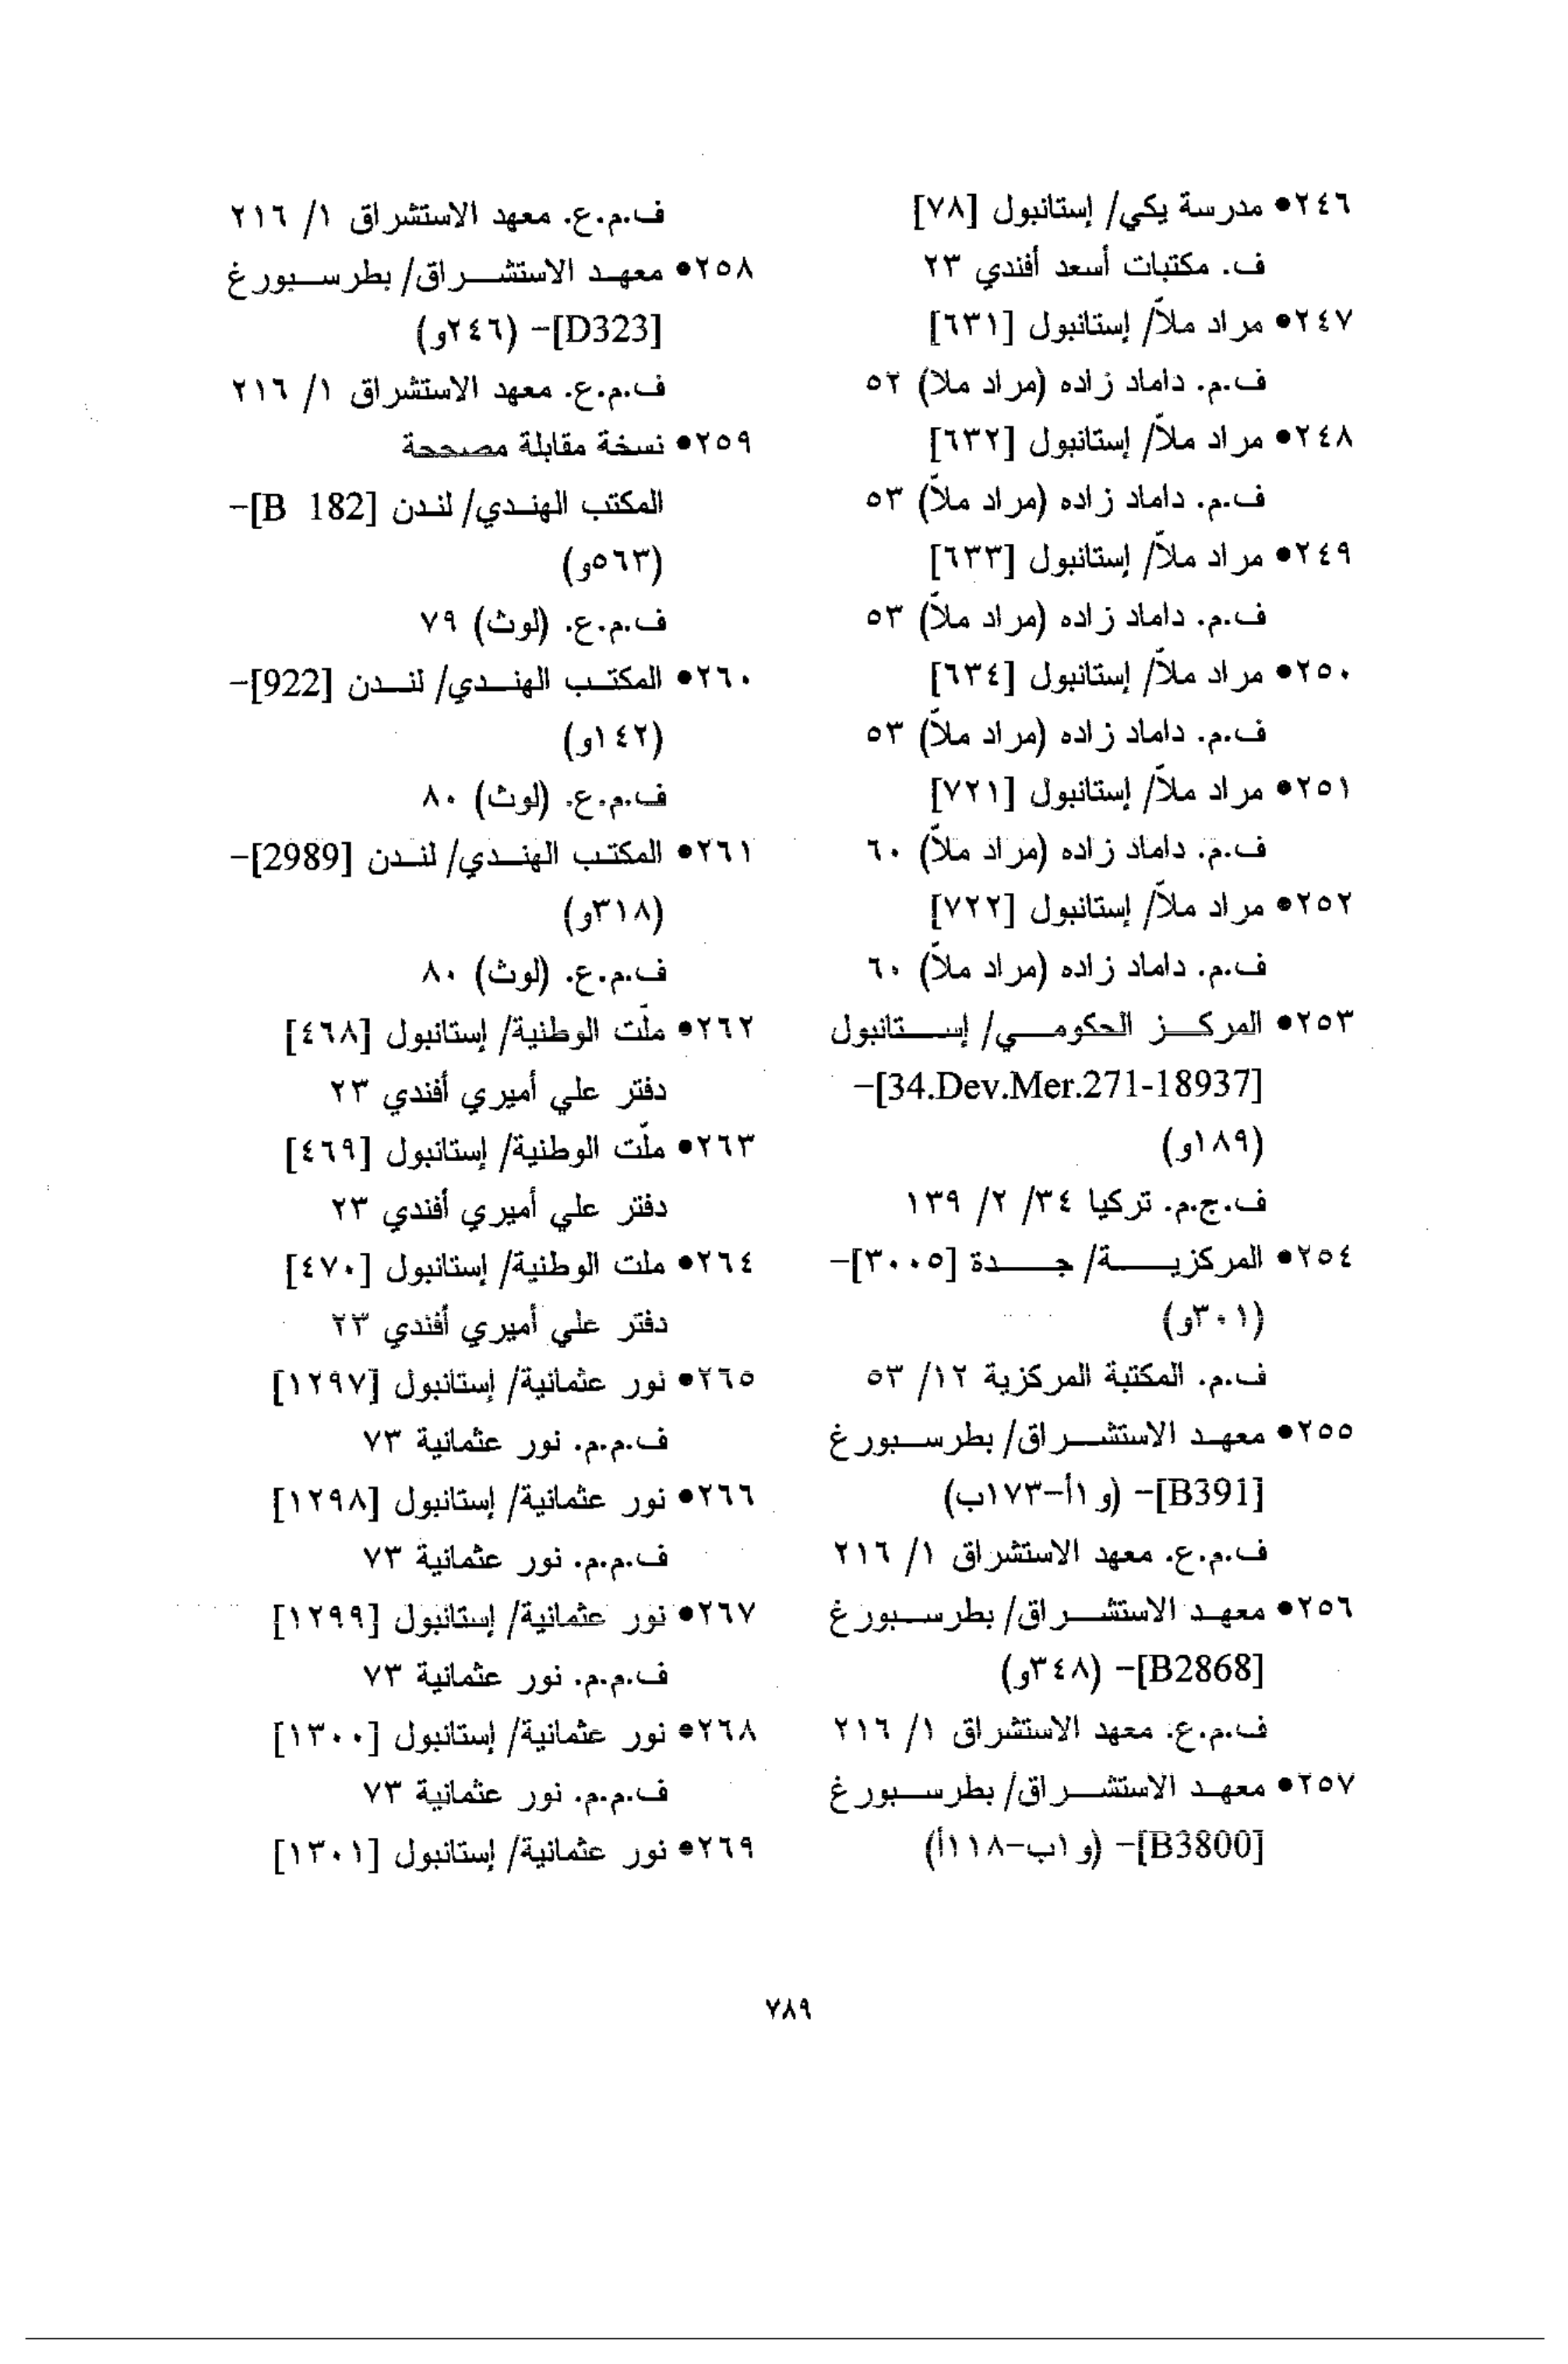 ٢٤٦• مدرسة يكي/ إستانبول [٧٨]
ف. مكتبات أسعد أفندي ٢٣
٢٤٧• مراد ملاّ/ إستانبول [٦٣١]
ف.م. داماد زاده (مراد ملا) ٥٢
٢٤٨• مراد ملاّ/ إستانبول [٦٣٢]
ف.م. داماد زاده (مراد ملاّ) ٥٣
٢٤٩• مراد ملاّ/ إستانبول [٦٣٣]
ف.م. داماد زاده (مراد ملاّ) ٥٣
٢٥٠• مراد ملاّ/ إستانبول [٦٣٤]
ف.م. داماد زاده (مراد ملاّ) ٥٣
٢٥١• مراد ملاّ/ إستانبول [٧٢١]
ف.م. داماد زاده (مراد ملاّ) ٦٠
٢٥٢• مراد ملاّ/ إستانبول [٧٢٢]
ف.م. داماد زاده (مراد ملاّ) ٦٠
٢٥٣• المركز الحكومي/ إستانبول
[34.Dev.Mer.271-18937]–
(١٨٩و)
ف.ج.م. تركيا ٣٤/ ٢/ ١٣٩
٢٥٤• المركزية/ جدة [٣٠٠٥]–
(٣٠١و)
ف.م. المكتبة المركزية ١٢/ ٥٣
٢٥٥• معهد الاستشراق/ بطرسبورغ
[B391]– (و١أ–١٧٣ب)
ف.م.ع. معهد الاستشراق ١/ ٢١٦
٢٥٦• معهد الاستشراق/ بطرسبورغ
[B2868]– (٣٤٨و)
ف.م.ع. معهد الاستشراق ١/ ٢١٦
٢٥٧• معهد الاستشراق/ بطرسبورغ
[B3800]– (و١ب–١١٨أ)
ف.م.ع. معهد الاستشراق ١/ ٢١٦
٢٥٨• معهد الاستشراق/ بطرسبورغ
[D323]– (٢٤٦و)
ف.م.ع. معهد الاستشراق ١/ ٢١٦
٢٥٩• نسخة مقابلة مصححة
المكتب الهندي/ لندن [B 182]–
(٥٦٣و)
ف.م.ع. (لوث) ٧٩
٢٦٠• المكتب الهندي/ لندن [922]–
(١٤٢و)
ف.م.ع. (لوث) ٨٠
٢٦١• المكتب الهندي/ لندن [2989]–
(٣١٨و)
ف.م.ع. (لوث) ٨٠
٢٦٢• ملّت الوطنية/ إستانبول [٤٦٨]
دفتر علي أميري أفندي ٢٣
٢٦٣• ملّت الوطنية/ إستانبول [٤٦٩]
دفتر علي أميري أفندي ٢٣
٢٦٤• ملت الوطنية/ إستانبول [٤٧٠]
دفتر علي أميري أفندي ٢٣
٢٦٥• نور عثمانية/ إستانبول [١٢٩٧]
ف.م.م. نور عثمانية ٧٣
٢٦٦• نور عثمانية/ إستانبول [١٢٩٨]
ف.م.م. نور عثمانية ٧٣
٢٦٧• نور عثمانية/ إستانبول [١٢٩٩]
ف.م.م. نور عثمانية ٧٣
٢٦٨• نور عثمانية/ إستانبول [١٣٠٠]
ف.م.م. نور عثمانية ٧٣
٢٦٩• نور عثمانية/ إستانبول [١٣٠١]
٧٨٩